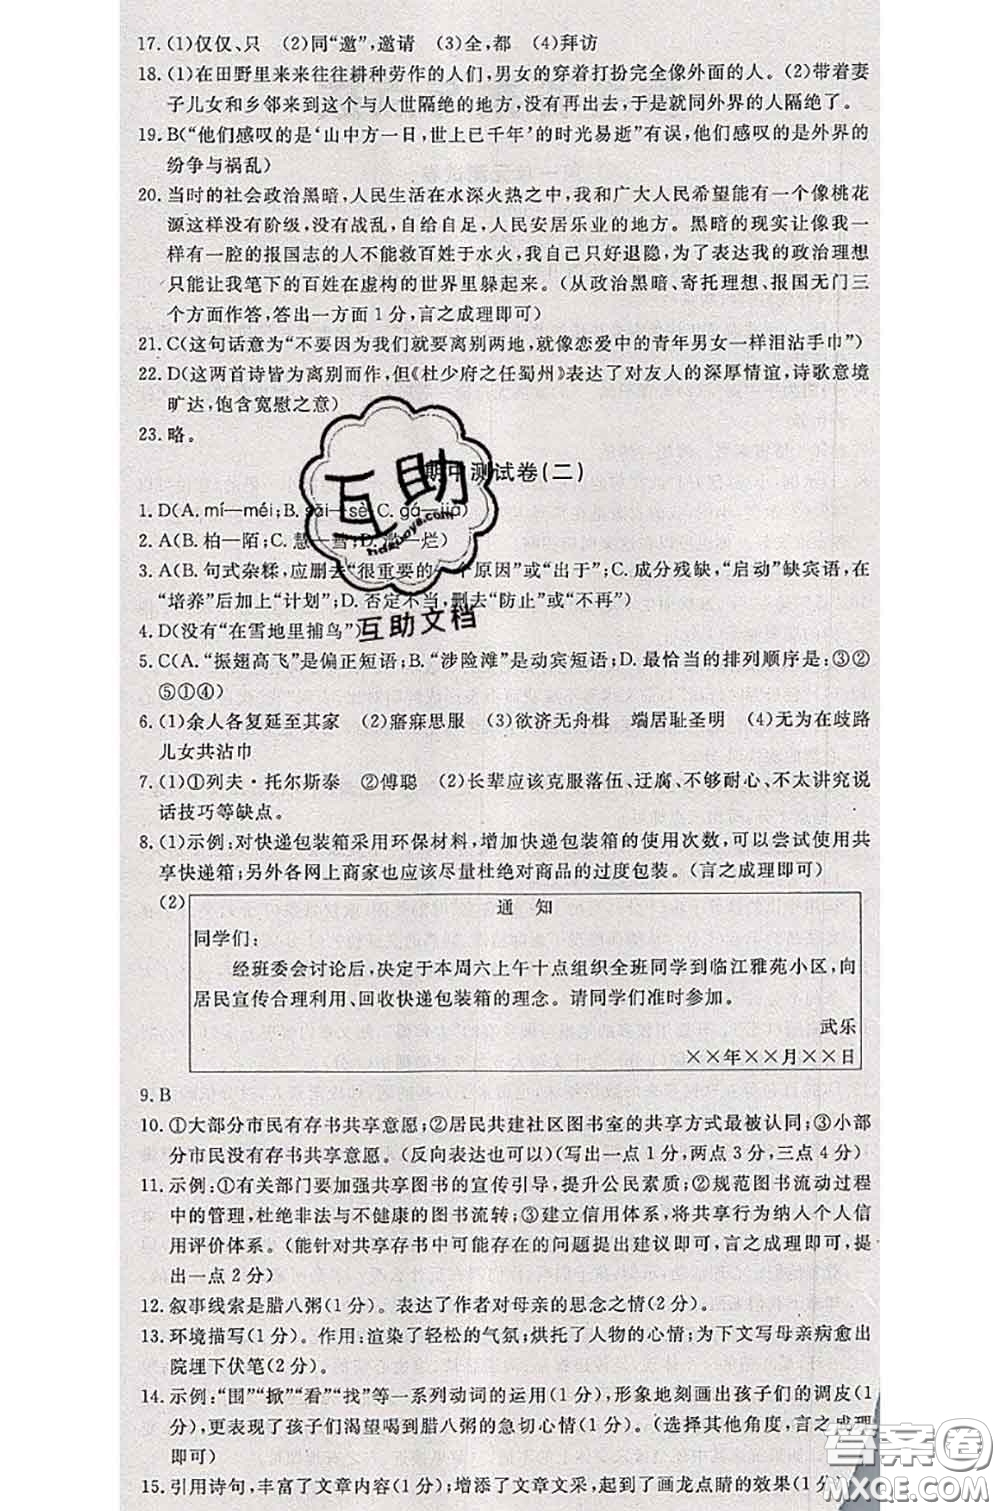 17. (1)仅仅、只　(2)同“邀”,邀请　(3)全,都　(4)拜访
18. (1)在田野里来来往往耕种劳作的人们,男女的穿着打扮完全像外面的人。(2)带着妻
子儿女和乡邻来到这个与人世隔绝的地方,没有再出去,于是就同外界的人隔绝了。
19. B(“他们感叹的是‘山中方一日,世上已千年’的时光易逝”有误,他们感叹的是外界的
纷争与祸乱)
20. 当时的社会政治黑暗,人民生活在水深火热之中,我和广大人民希望能有一个像桃花
源这样没有阶级,没有战乱,自给自足,人民安居乐业的地方。黑暗的现实让像我
一样有一腔的报国志的人不能救百姓于水火,我自己只好退隐,为了表达我的政治理想
只能让我笔下的百姓在虚构的世界里躲起来。(从政治黑暗、寄托理想、报国无门三
个方面作答,答出一方面1分,言之成理即可)
21. C(这句话意为“不要因为我们就要离别两地,就像恋爱中的青年男女一样泪沾手巾”)
22. D(这两首诗皆为离别而作,但《杜少府之任蜀州》表达了对友人的深厚情谊,诗歌意境
旷达,饱含宽慰之意)
23. 略。
期中测试卷(二)
1. D(A. mí—méi; B. sāi—sè; C. gá—jiā)
2. A(B. 柏—陌; C. 慧—彗; D. 滥—烂)
3. A(B. 句式杂糅,应删去“很重要的一个原因”或“出于”; C. 成分残缺,“启动”缺宾语,在
“培养”后加上“计划”; D. 否定不当,删去“防止”或“不再”)
4. D(没有“在雪地里捕鸟”)
5. C(A. “振翅高飞”是偏正短语; B. “涉险滩”是动宾短语; D. 最恰当的排列顺序是:③②
⑤①④)
6. (1)余人各复延至其家　(2)寤寐思服　(3)欲济无舟楫　端居耻圣明　(4)无为在歧路
儿女共沾巾
7. (1)①列夫·托尔斯泰　②傅聪　(2)长辈应该克服落伍、迂腐、不够耐心、不太讲究说
话技巧等缺点。
8. (1)示例:对快递包装箱采用环保材料,增加快递包装箱的使用次数,可以尝试使用共
享快递箱;另外各网上商家也应该尽量杜绝对商品的过度包装。(言之成理即可)
(2)
通　知
同学们:
经班委会讨论后,决定于本周六上午十点组织全班同学到临江雅苑小区,向
居民宣传合理利用、回收快递包装箱的理念。请同学们准时参加。
武乐
××年××月××日
9. B
10. ①大部分市民有存书共享意愿;②居民共建社区图书室的共享方式最被认同;③小部
分市民没有存书共享意愿。(反向表达也可)(写出一点1分,两点3分,三点4分)
11. 示例:①有关部门要加强共享图书的宣传引导,提升公民素质;②规范图书流动过程
中的管理,杜绝非法与不健康的图书流转;③建立信用体系,将共享行为纳入个人信
用评价体系。(能针对共享存书中可能存在的问题提出建议即可,言之成理即可,提
出一点2分)
12. 叙事线索是腊八粥(1分)。表达了作者对母亲的思念之情(2分)。
13. 环境描写(1分)。作用:渲染了轻松的气氛;烘托了人物的心情;为下文写母亲病愈出
院埋下伏笔(2分)。
14. 示例:“围”“掀”“看”“找”等一系列动词的运用(1分),形象地刻画出孩子们的调皮(1
分),更表现了孩子们渴望喝到腊八粥的急切心情(1分)。(选择其他角度,言之成理
即可)
15. 引用诗句,丰富了文章内容(1分);增添了文章文采,起到了画龙点睛的效果(1分)。
互助
hdzboyo.com
互助文档
答案圈
MXQE.COM